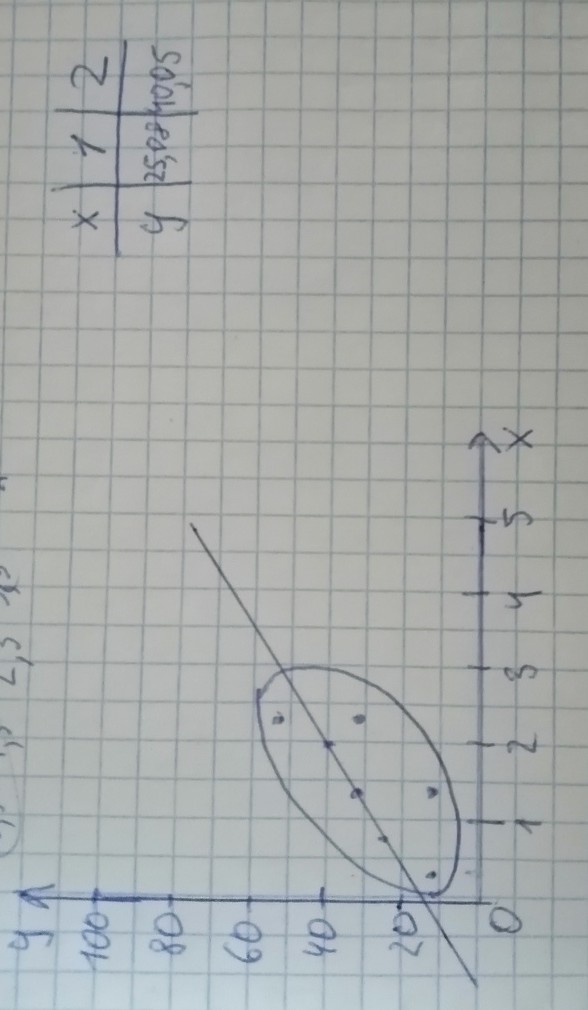 y
100
80
60
40
20
0 1 2 3 4 5 x
x 1 2
y 25,08 40,05